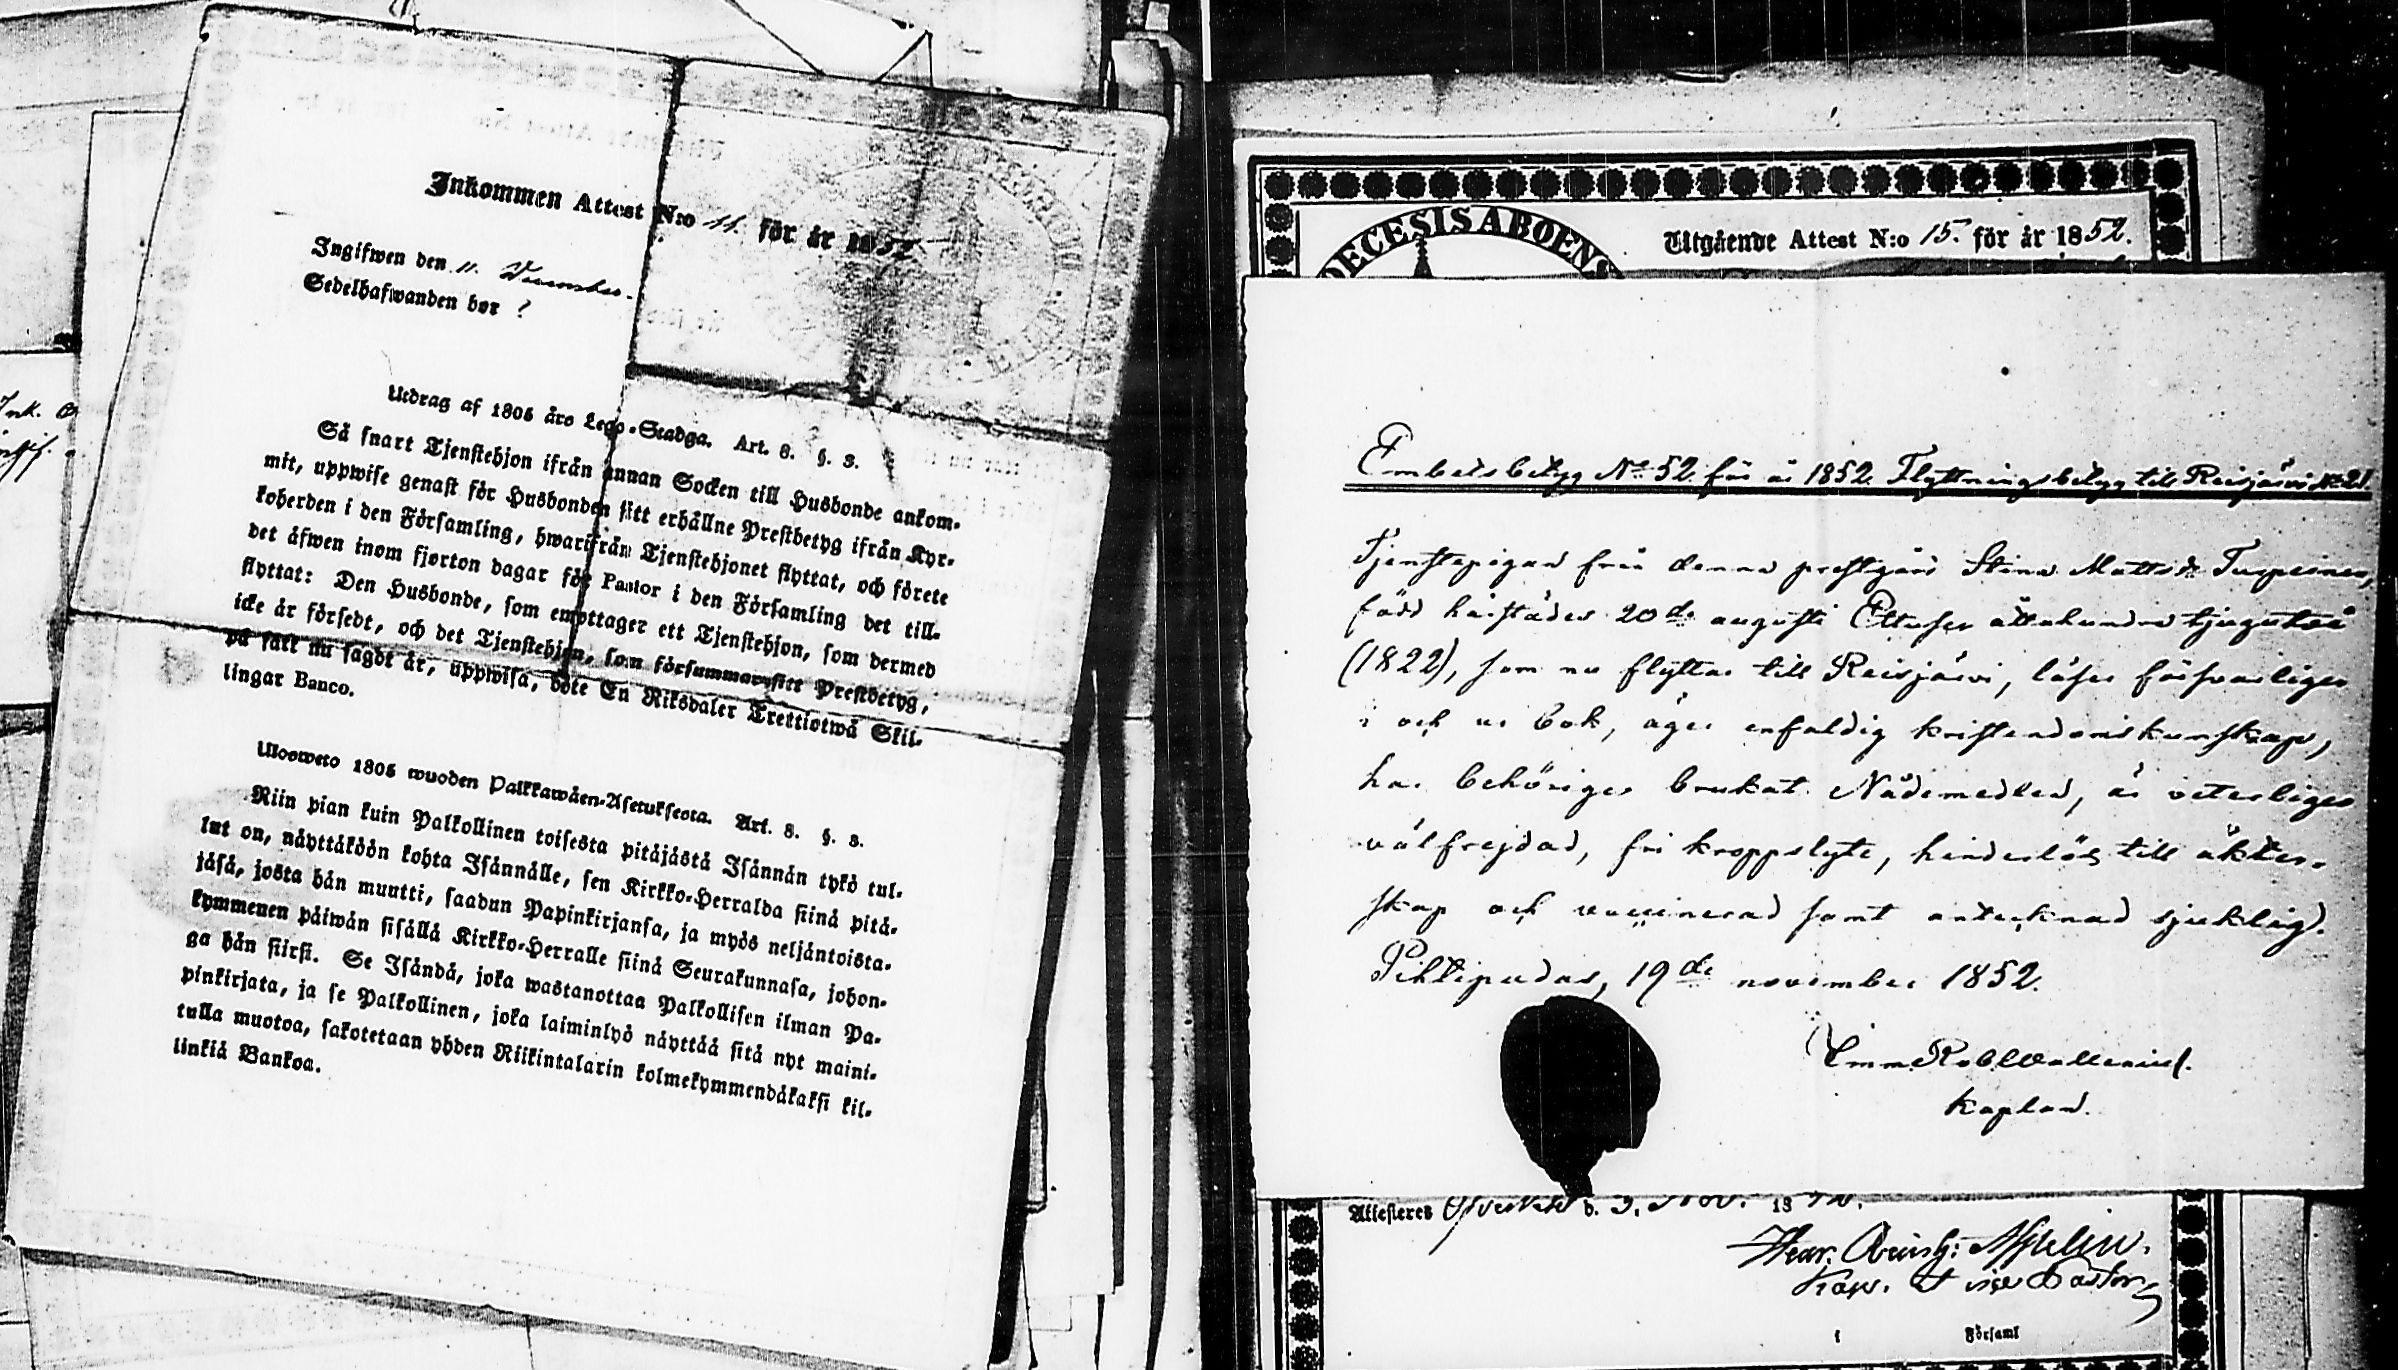 Inkommen Attest N:o 11. för år 1852
Ingifwen den 11. December.
Sedelhafwanden bor ?
Utdrag af 1805 års Lego-Stadga. Art. 8. §. 3.
Så snart Tjenstehjon ifrån annan Socken till Husbonde ankom-
mit, uppwise genast för Husbonden sitt erhållne Prestbetyg ifrån Kyr-
koherden i den Församling, hwarifrån Tjenstehjonet flyttat, och förete
det äfwen inom fjorton dagar för Pastor i den Församling det till-
flyttat: Den Husbonde, som emottager ett Tjenstehjon, som dermed
icke är försedt, och det Tjenstehjon, som försummar sitt Prestbetyg,
på sätt nu sagdt är, uppwisa, böte En Riksdaler Trettiotwå Skil-
lingar Banco.
Ulosweto 1805 wuoden Palkkawäen-Asetuksesta. Art. 8. §. 3.
Niin pian kuin Palkollinen toisesta pitäjästä Isännän tykö tul-
lut on, näyttäköön kohta Isännälle, sen Kirkko-Herralda siinä pitä-
jäsä, josta hän muutti, saadun Papinkirjansa, ja myös neljäntoista-
kymmenen päiwän sisällä Kirkko-Herralle siinä Seurakunnasa, johon-
ga hän siirsi. Se Isändä, joka wastanottaa Palkollisen ilman Pa-
pinkirjata, ja se Palkollinen, joka laiminlyö näyttää sitä nyt maini-
tulla muotoa, sakotetaan yhden Riikintalarin kolmekymmendäkaksi kil-
linkiä Bankoa.
Ink.
DECESIS ABOENS
Utgående Attest N:o 15. för år 1852.
Embetsbetyg No 52 för år 1852. Flyttningsbetyg till Reisjärvi No 21.
Tjenstepigan från denna prestgård Stina Mattsdr Turpeinen,
född härstädes 20de augusti Ettusen åttahundra tjugutvå
(1822), som nu flyttar till Reisjärvi, läser försvarligen
i och ur bok, äger enfaldig kristendomskunskap,
har behörigen brukat Nådemedlen, är veterligen
välfrejdad, fri kroppslyte, hinderlös till äkten-
skap och vaccinerad samt antecknad sjuklig.
Pihtipudas, 19de november 1852.
Emm. Rob Wallenius.
Kaplan.
Attesteras d. 3. Nov. 18
Kap. vice Pastor
i Församl